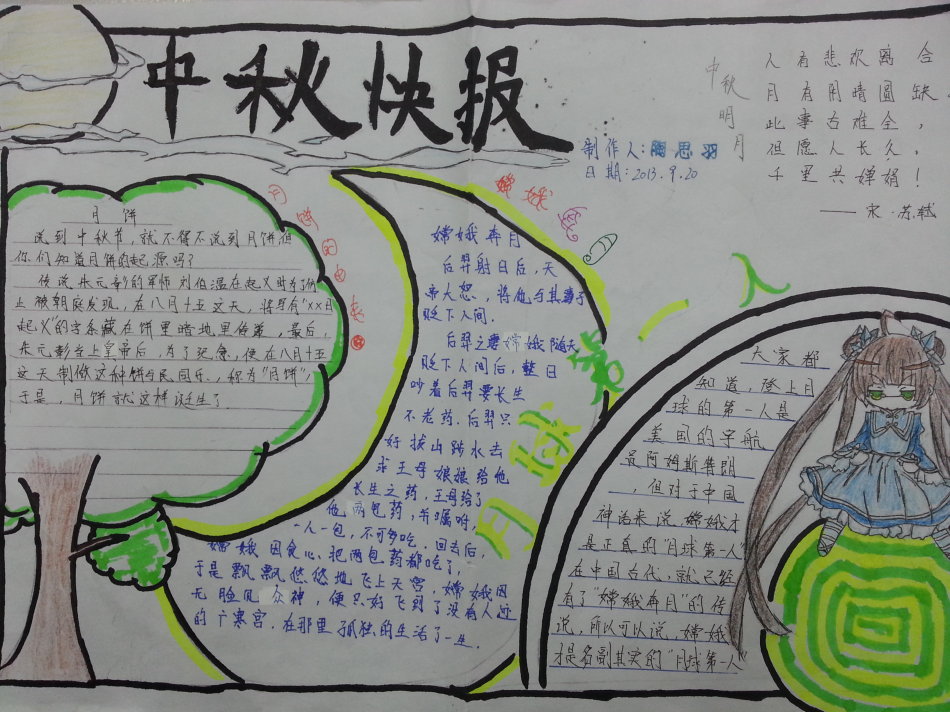 中秋快报
制作人:陶思羽
日期:2013.9.20
中秋明月
人有悲欢离合
月有阴晴圆缺
此事古难全,
但愿人长久,
千里共婵娟!
——宋·苏轼
月饼的由来
月饼
说到中秋节,就不得不说到月饼,但
你们知道月饼的起源吗?
传说朱元彰的军师刘伯温在起义时为了防
止被朝庭发现,在八月十五这天,将写有“××日
起义”的字条藏在饼里暗地里传递,最后,
朱元彰当上皇帝后,为了纪念,便在八月十五
这天制做这种饼与民同乐,称为“月饼”,
于是,月饼就这样诞生了.
嫦娥
嫦娥奔月
后羿射日后,天
帝大怒,将他与其妻子
贬下人间.
后羿之妻嫦娥随夫
贬下人间后,整日
吵着后羿要长生
不老药.后羿只
好拔山涉水去
求王母娘娘给他
长生之药,王母给了
他两包药,并嘱咐,
一人一包,不可多吃.回去后,
嫦娥因贪心,把两包药都吃了,
于是飘飘悠悠地飞上天宫,嫦娥因
无脸见众神,便只好飞到了没有人迹
的广寒宫.在那里孤独的生活了一生.
月球第一人
大家都
知道,登上月
球的第一人是
美国的宇航
员阿姆斯特朗
,但对于中国
神话来说,嫦娥才
是正真的“月球第一人”
在中国古代,就已经
有了“嫦娥奔月”的传
说,所以可以说,嫦娥
才是名副其实的“月球第一人”